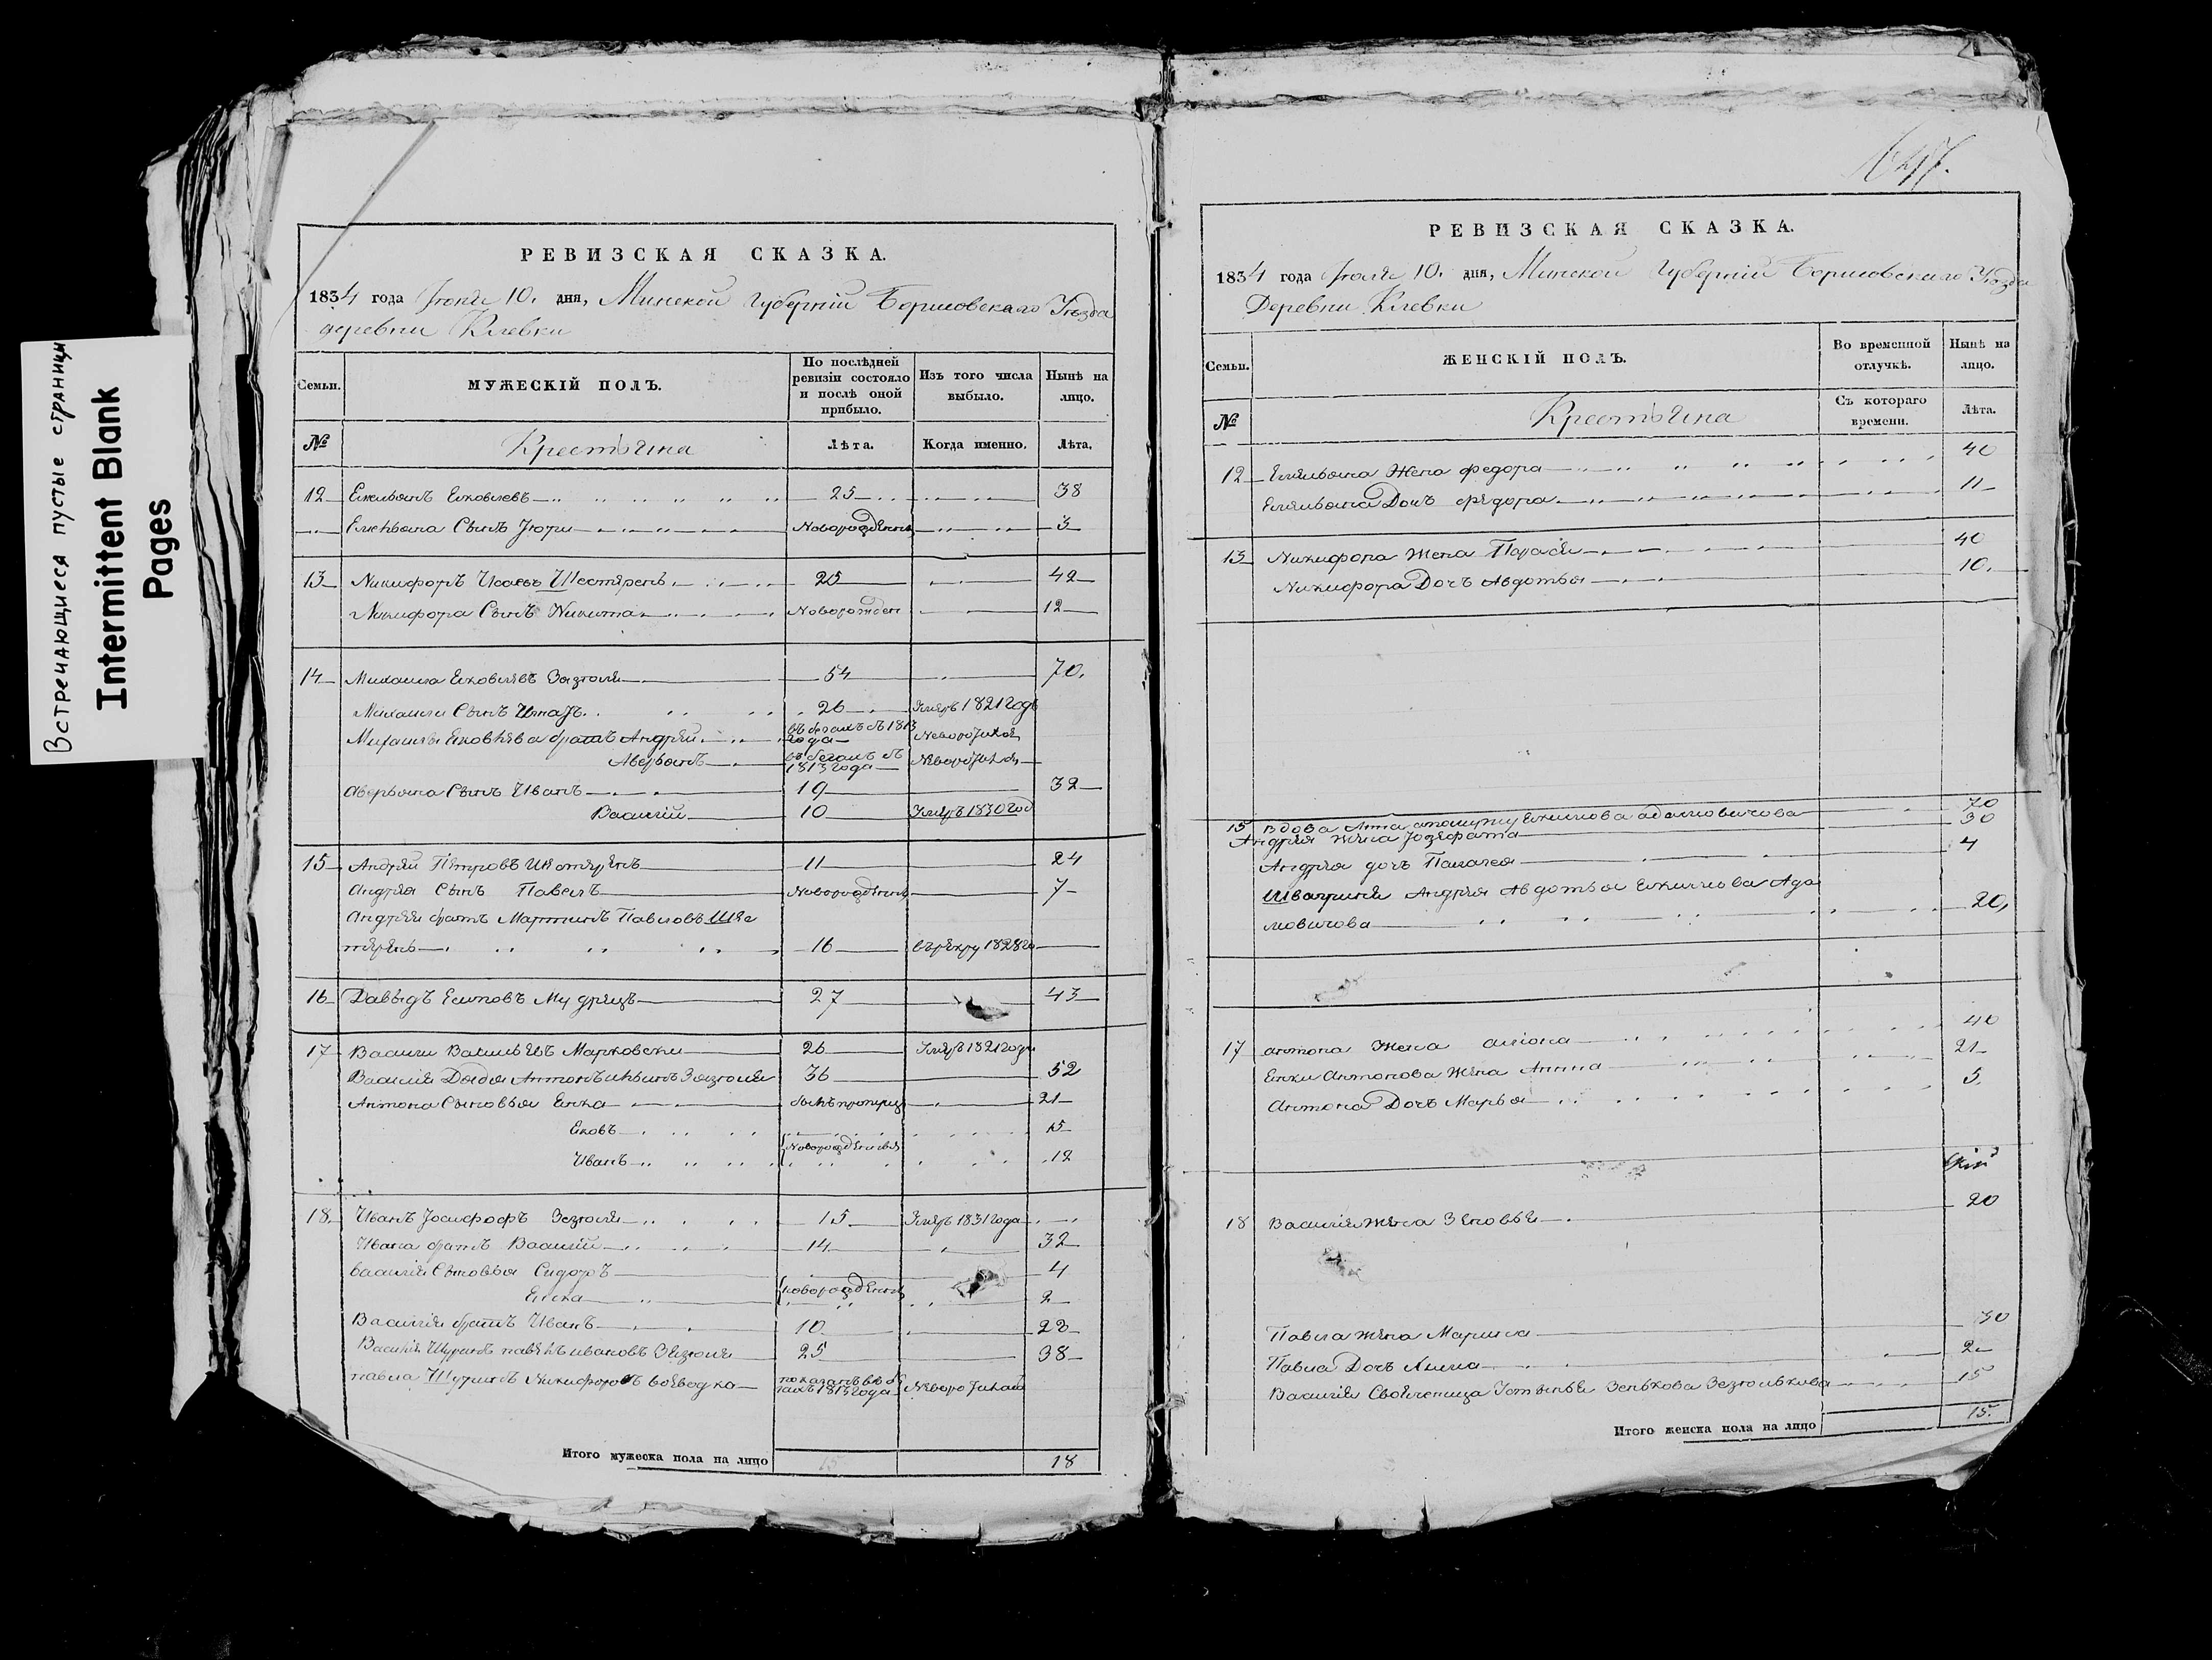 Встречающиеся пустые страницы
Intermittent Blank
Pages
РЕВИЗСКАЯ СКАЗКА.
1834 года Іюля 10. дня, Минской Губерніи Борисовскаго Уѣзда
деревни Клевки
Семьи.
МУЖЕСКІЙ ПОЛЪ.
По послѣдней ревизіи состояло и послѣ оной прибыло.
Изъ того числа выбыло.
Нынѣ на лицо.
№
Крестьяна
Лѣта.
Когда именно.
Лѣта.
12 Емельянъ 25 38
Емельяна Сынъ Новорожденны 3
13 Никифоръ Исаевъ Шестерень 25 42
Никифора Сынъ Никита Новорожден 12
14 Михаила Яковлевъ Зязюля 54 70.
Михаили Сынъ Игнатъ 26 Умеръ 1821 годa
Михаила Яковлева братъ Андрей въ бегахъ съ 1813 года
Аверьянъ въ бегахъ съ 1813 года
Аверьяна Сынъ Иванъ 19 32
Василій 10 Умеръ 1830 год
15 Андрей Петровъ 11 24
Андрея Сынъ Павелъ Новорожденны 7
Андрея братъ Мартинъ Павловъ Шес
терень 16 въ рекру 1828 го
16 Давыдъ Есиповъ Мудрецъ 27 43
17 Василь Васильевъ Марковски 26 Умеръ 1821 годa
Василія Дядя Антонъ Зязюля 36 52
Антона Сыновья Янка 21
Яковъ 15
Новорожденныя
Иванъ 12
18. Иванъ Іосифофъ Зезюля 15 Умеръ 1831 года
Ивана братъ Василій 14 32
Василія Сыновья Сидоръ 4
новорожденны
2
Василія братъ Иванъ 10 22
Василія Шуринъ Ивановъ Зезюля 25 38
Павла Шуринъ Никифоръ Воеводка показанъ въ бегахъ 1813 года
Итого мужеска пола на лицо 18
647.
РЕВИЗСКАЯ СКАЗКА.
1834 года Іюля 10. дня, Минской Губерніи Борисовскаго Уѣзда
Деревни Клевки
Семьи.
ЖЕНСКІЙ ПОЛЪ.
Во временной отлучкѣ.
Нынѣ на лицо.
№
Крестьяна
Съ котораго времени.
Лѣта.
12 Емельяна Жена федора 40
Емельяна Дочъ федора 11
13 Никифора Жена Парася 40
Никифора Дочъ Авдотья 10.
15 Вдова Анна Адамовичова 70
Андрея Жена Іозефата 30
Андрея дочъ Палагея 4
Андрея Авдотья Ада
мовичова 20,
17 Антона Жена 40
Янки Антонова Жена Анна 21
Антона Дочъ Марья 5
18 Василія Жена Зеновья 20
Павла Жена Марына 30
Павла Дочъ 2
Василія Своячница Зенькова Зезюлькова 15
Итого женска пола на лицо 15.